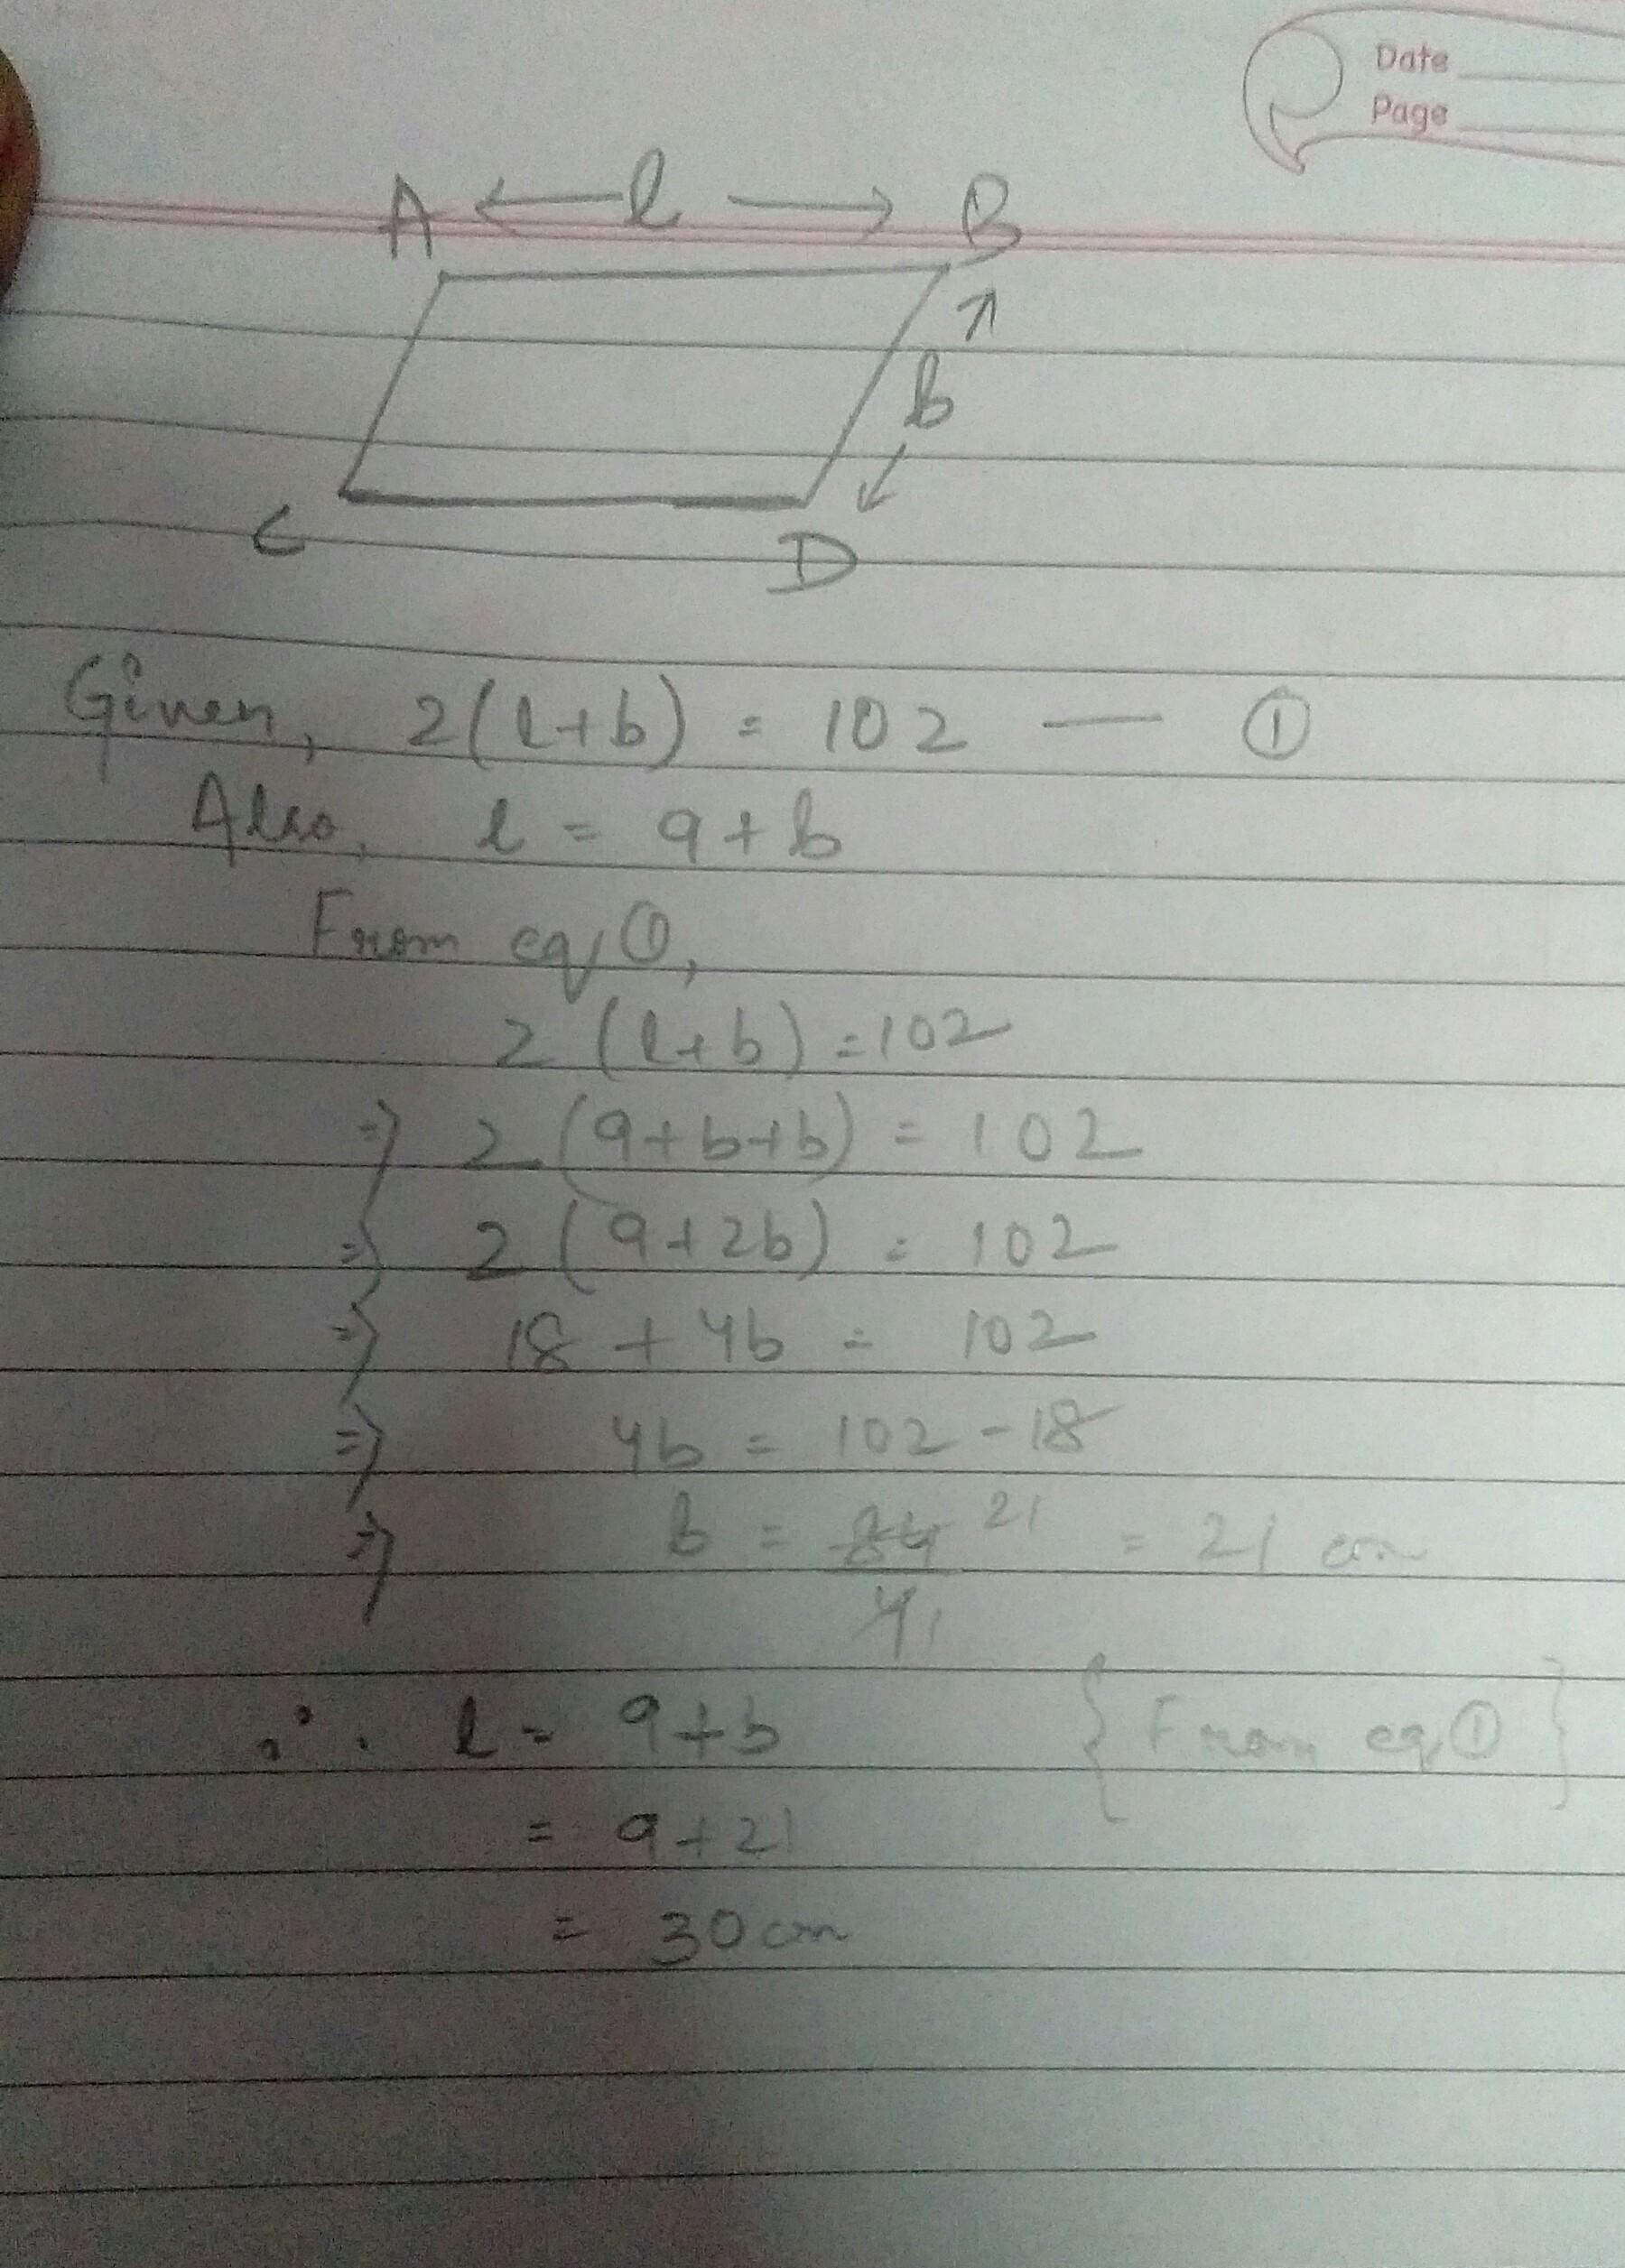 Date
Page
A ← l → B
b
C D
Given, 2(l+b) = 102 — ①
Also, l = 9+b
From eq ①,
2 (l+b) = 102
⇒ 2 (9+b+b) = 102
⇒ 2 (9+2b) = 102
⇒ 18 + 4b = 102
⇒ 4b = 102 - 18
⇒ b = 84/4 21 1 = 21 cm
∴ l = 9+b {From eq ①}
= 9+21
= 30 cm